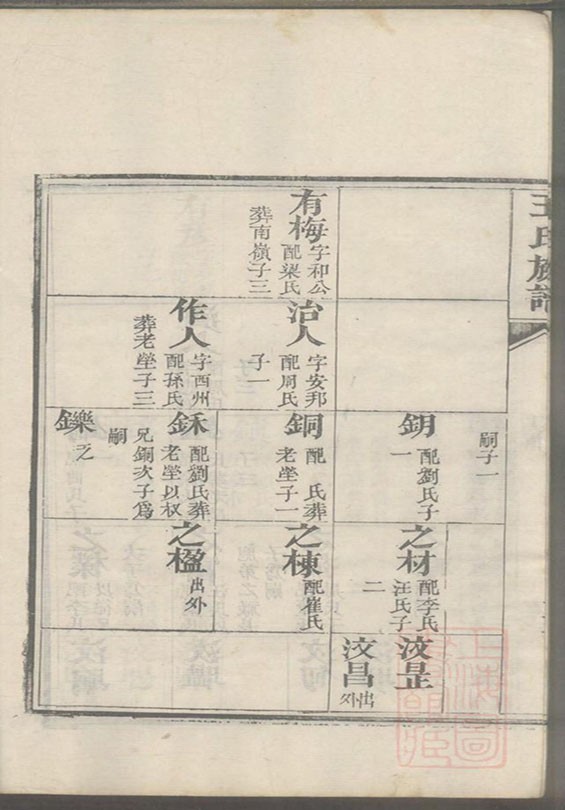 王氏族譜
有梅
字和公
配梁氏
葬南嶺子三
治人
字安邦
配周氏
子一
作人
字西州
配孫氏
葬老塋子三
嗣子一
鈅
配劉氏子
一
銅
配 氏葬
老塋子一
鉌
配劉氏葬
老塋以权
兄銅次子爲
嗣
鑠
乏
之材
配李氏
汪氏子
二
之棟
配崔氏
之楹
出外
汶昰
汶昌
出外
上海圖